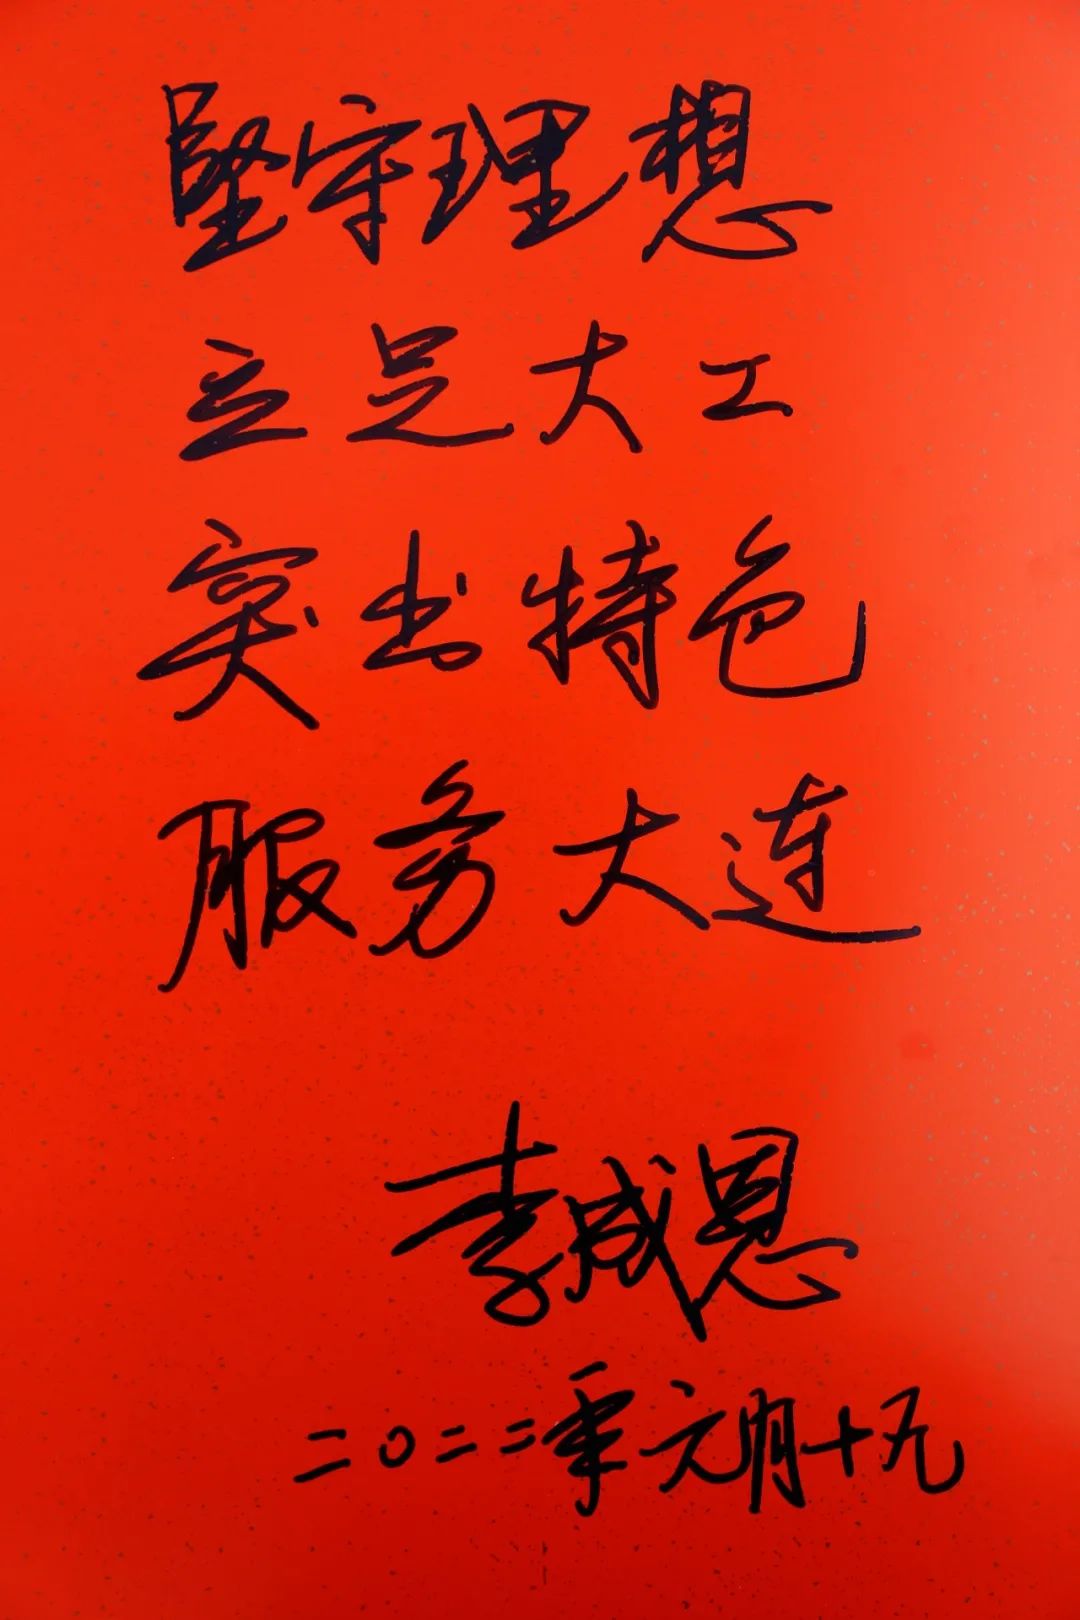 堅守理想
立足大工
突出特色
服务大连
李成恩
二〇二二年元月十九